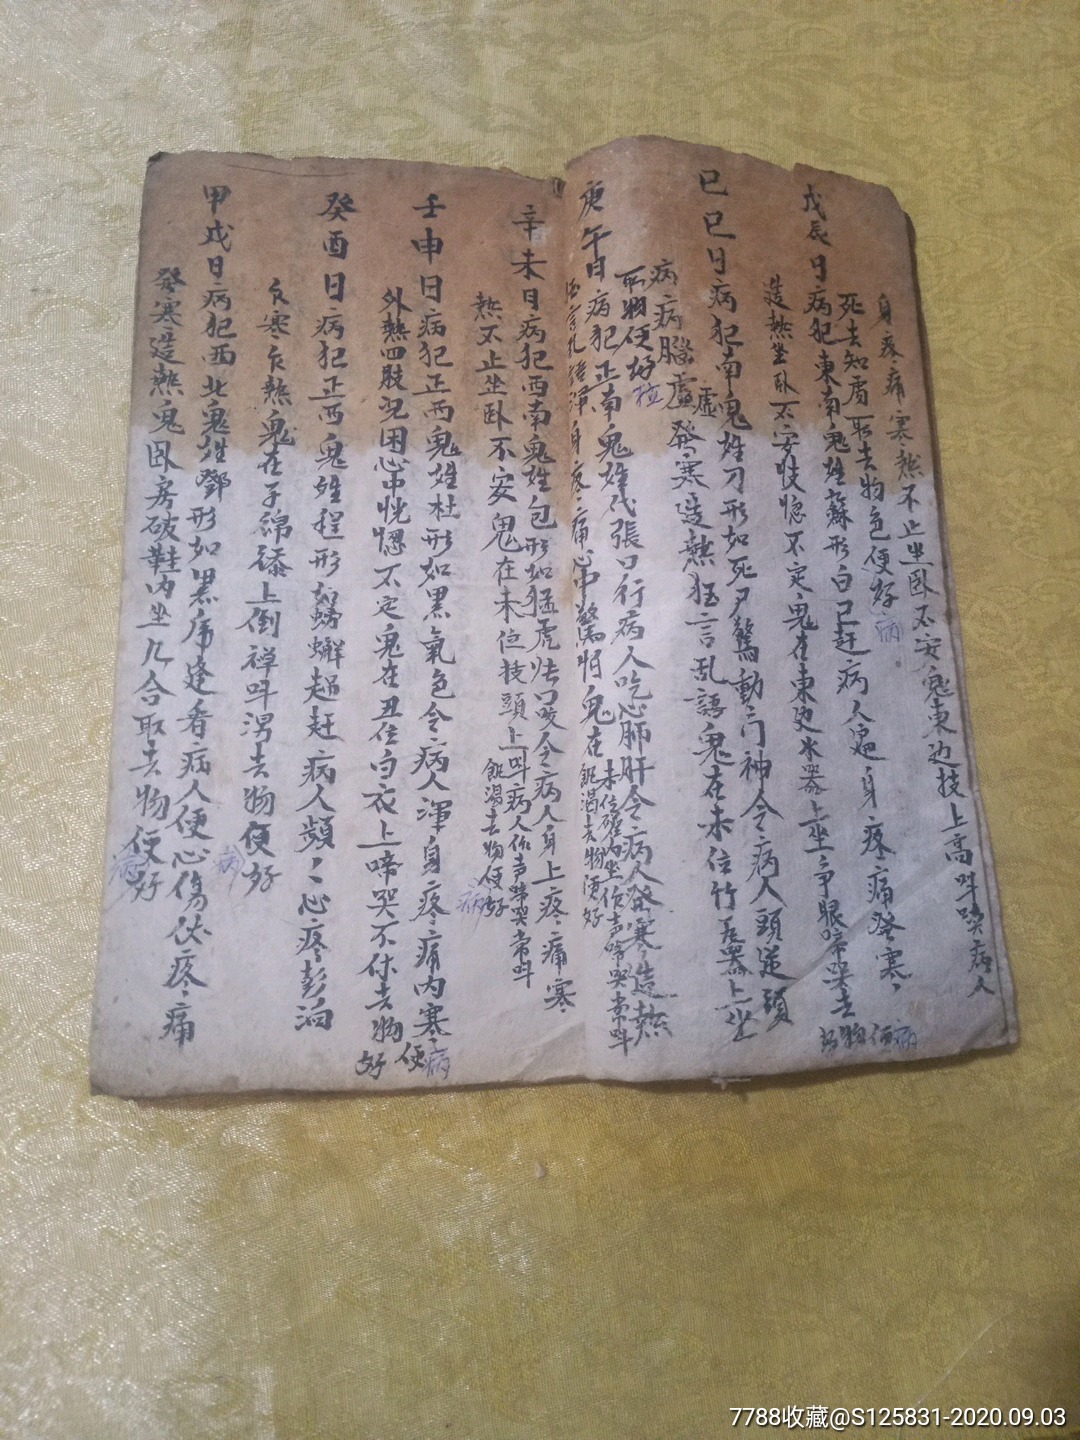 身疼痛寒熱不止坐卧不安鬼東边技上高呌哭病人
死去知處取去物色便好
病
戊辰日病犯東南鬼姓蘇形白已赶病人遍身疼痛發寒
造熱坐卧不安恍惚不定鬼在東处水器上坐争眼啼哭去
物便好
病
己巳日病犯南鬼姓刀形如死尸驚動门神令病人頭逆頭
病病腦虛發寒造熱狂言乱語鬼在未位竹器上坐
取物便好
庚午日病犯正南鬼姓代張口行病人吃心肺肝令病人發寒造熱
狂言乱語渾身疼痛心中驚怕鬼在未位碓内坐作声啼哭常呌
飢渴去物便好
辛未日病犯西南鬼姓包形如猛虎怯口咬令病人身上疼痛寒
熱不止坐卧不安鬼在未位技頭上呌病人作声啼哭常呌
飢渴去物便好
病
壬申日病犯正西鬼姓杜形如黑氣色令病人渾身疼痛内寒
外熱四肢沉困心中恍惚不定鬼在丑位白衣上啼哭不休去物
便好
病
癸酉日病犯正西鬼姓程形如螃蠏趕病人頻々心疼彭泊
乍寒乍熱鬼在子綿上倒禪呌渴去物便好
病
甲戌日病犯西北鬼姓鄧形如黑虎逢看病人便心傷伏疼痛
發寒造熱鬼卧房破鞋内坐九合取去物便好
病
7788收藏@S125831-2020.09.03